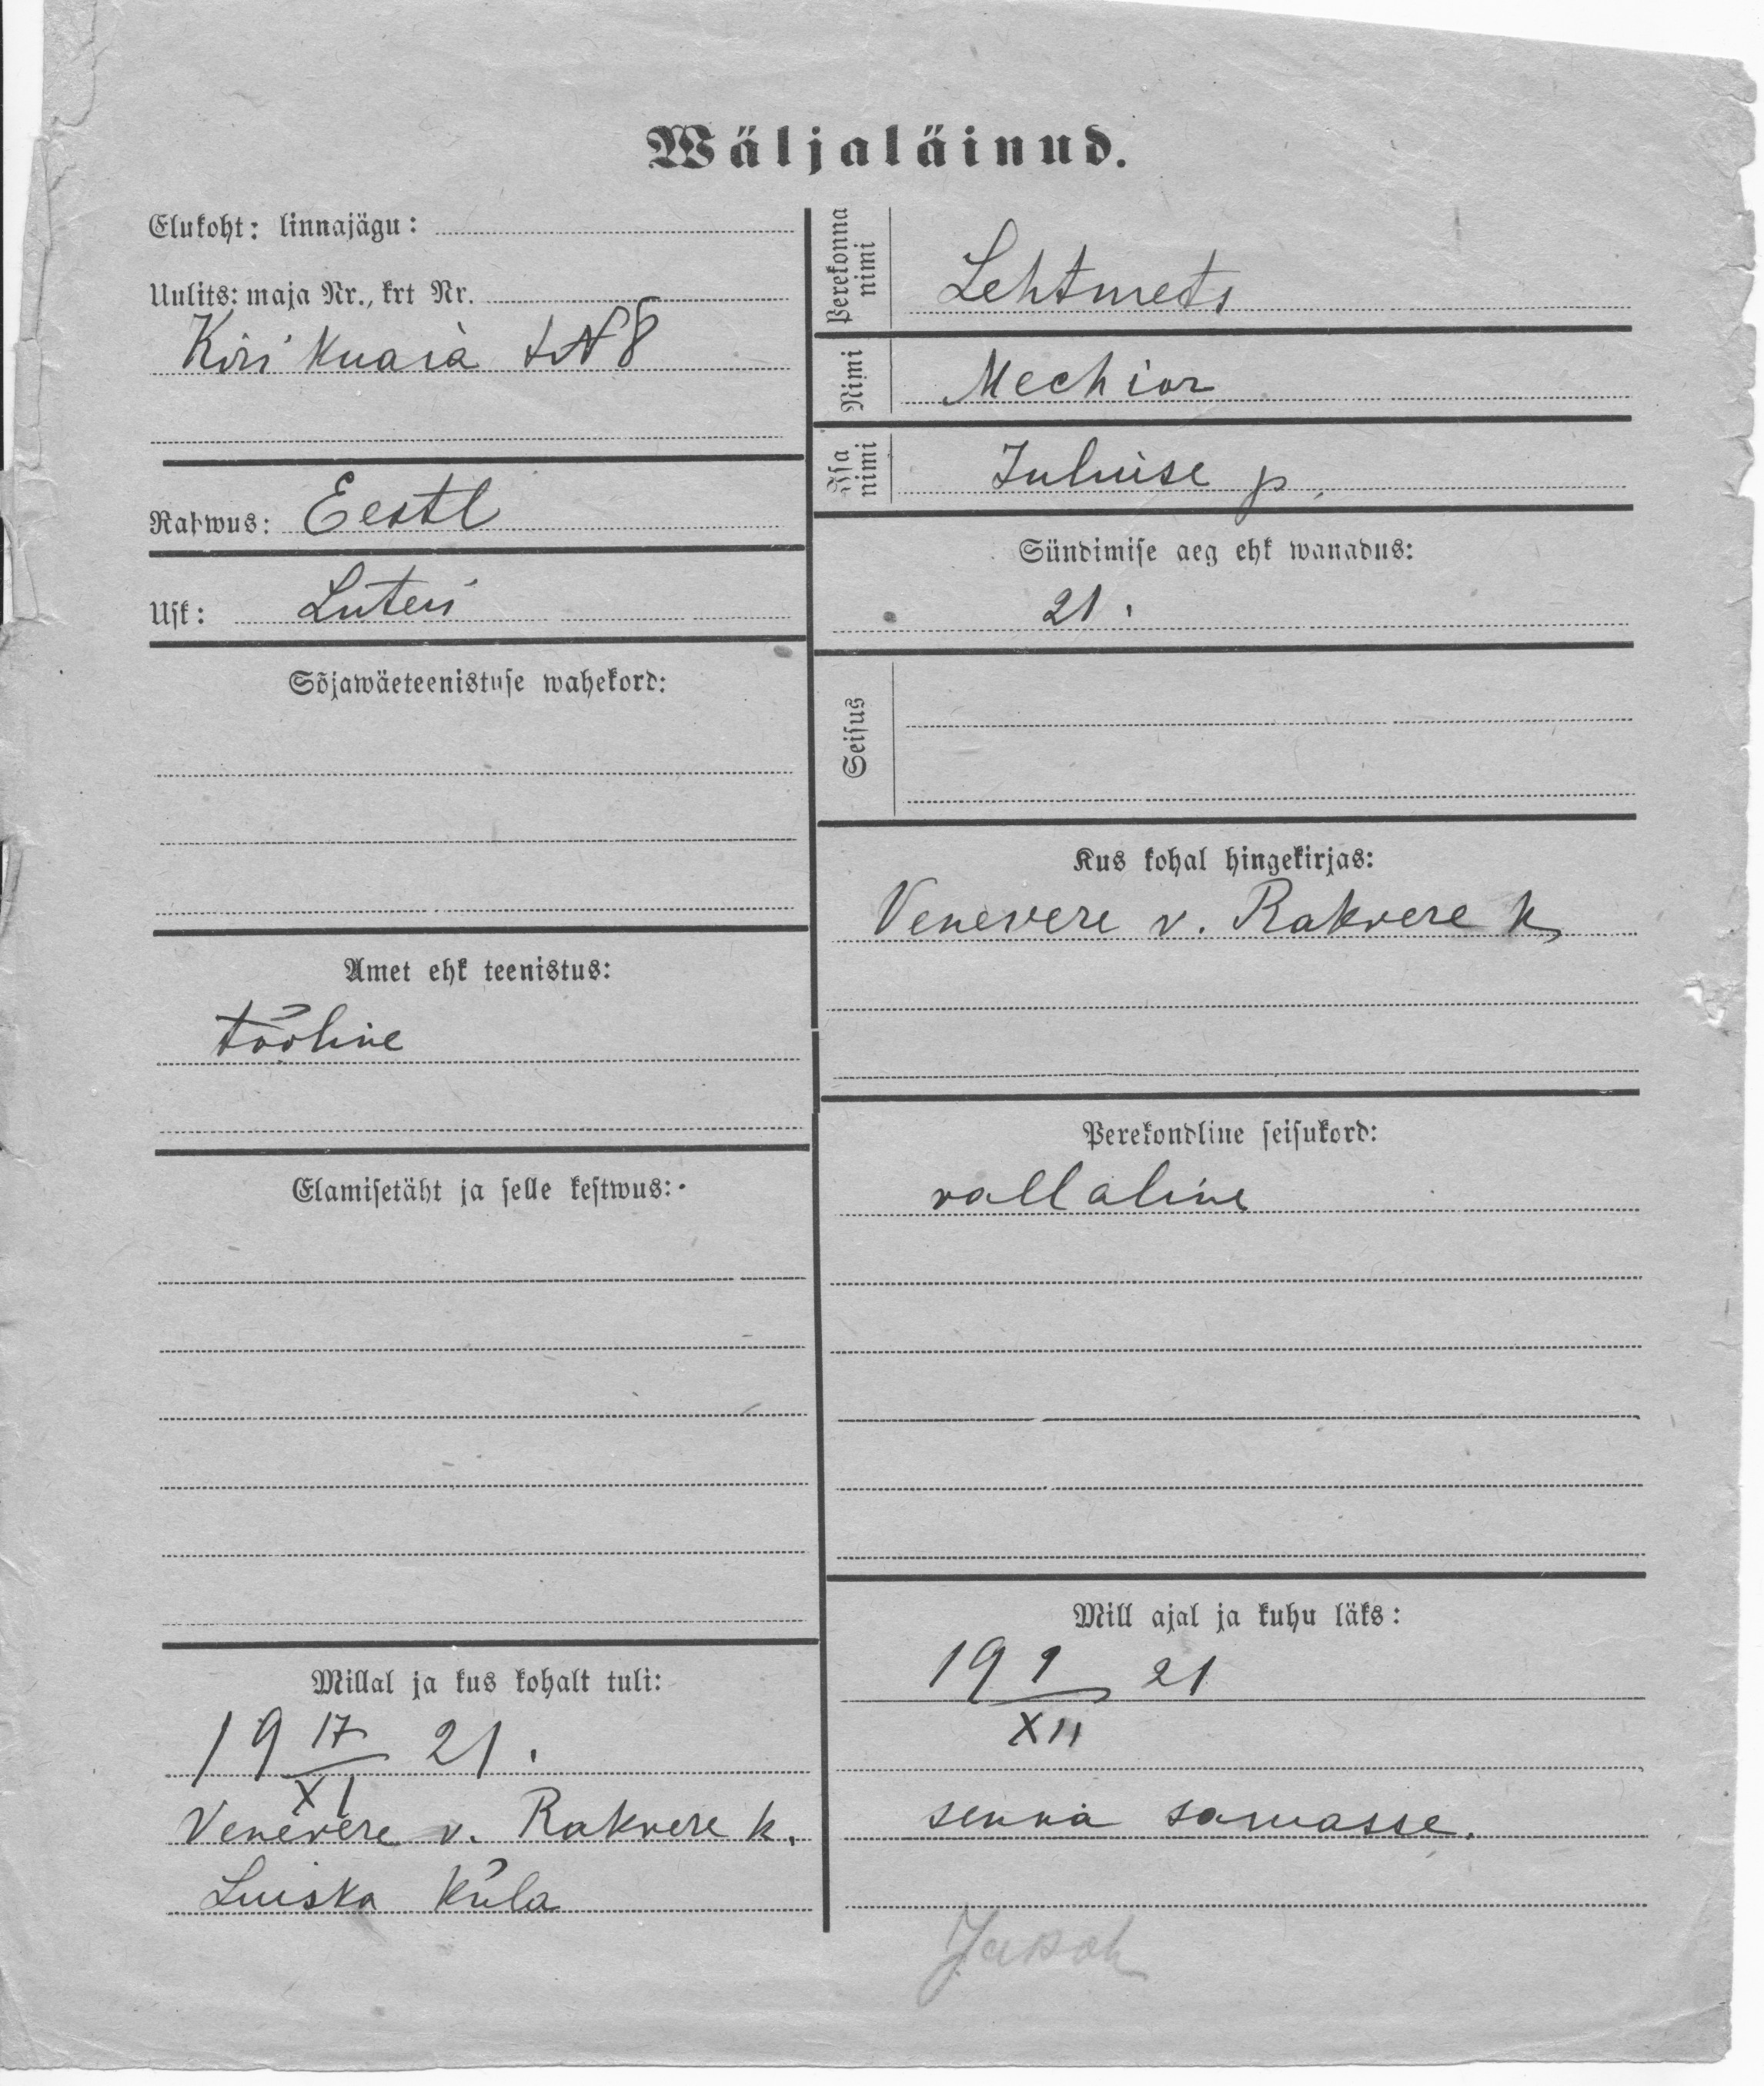 Wäljaläinud.
Elukoht: linnajägu:
Uulits: maja Nr., krt Nr.
Kirikuaia t N 8
Rahwus: Eestl
Usk: Luteri
Sõjawäeteenistuse wahekord:
Amet ehk teenistus:
tööline
Elamisetäht ja selle kestwus:
Millal ja kus kohalt tuli:
19 17/XI 21.
Venevere v. Rakvere k.
Luiska küla
Perekonna nimi
Lehtmets
Nimi
Mechior
Isa nimi
Juluise p.
Sündimise aeg ehk wanadus:
21.
Seisus
Kus kohal hingekirjas:
Venevere v. Rakvere k
Perekondline seisukord:
vallaline
Mill ajal ja kuhu läks:
19 1/XII 21
senna samasse.